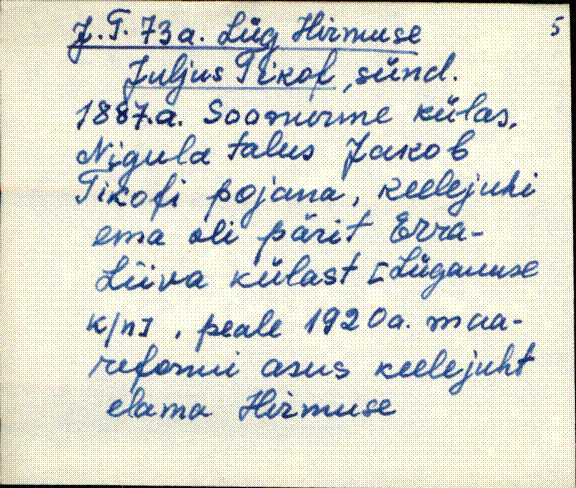 5
J. T. 73 a. Lüg Hirmuse
Juljus Tikof, sünd.
1887.a. Soonurme külas,
Nigula talus Jakob
Tikofi pojana, keelejuhi
ema oli pärit Erra-
Liiva külast [Lüganuse
k/n], peale 1920a. maa-
reformi asus keelejuht
elama Hirmuse